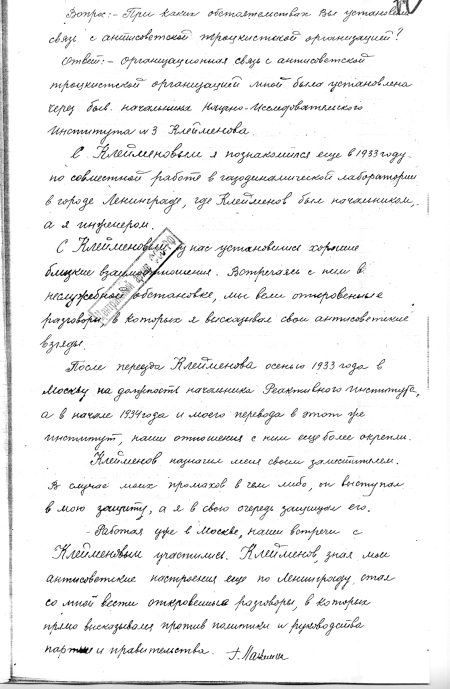 Вопрос:- При каких обстоятельствах Вы установили
связь с антисоветской троцкистской организацией?
Ответ:- Организационная связь с антисоветской
троцкистской организацией мной была установлена
через быв. начальника Научно-Исследовательского
Института №3 Клейменова.
С Клейменовым я познакомился еще в 1933 году.
по совместной работе в газодинамической лаборатории
в городе Ленинграде, где Клейменов был начальником,
а я инженером.
С Клейменовым у нас установились хорошие
близкие взаимоотношения. Встречаясь с ним в
неслужебной обстановке, мы вели откровенные
разговоры, в которых я высказывал свои антисоветские
взгляды.
После переезда Клейменова осенью 1933 года в
Москву на должность начальника Реактивного института,
а в начале 1934 года и моего перевода в этот же
институт, наши отношения с ним еще более окрепли.
Клейменов назначил меня своим заместителем.
В случае моих промахов в чем либо, он выступал
в мою защиту, а я в свою очередь защищал его.
- Работая уже в Москве, наши встречи с
Клейменовым участились. Клейменов, зная мои
антисоветские настроения еще по Ленинграду, стал
со мной вести откровенные разговоры, в которых
прямо высказывался против политики и руководства
партии и правительства.